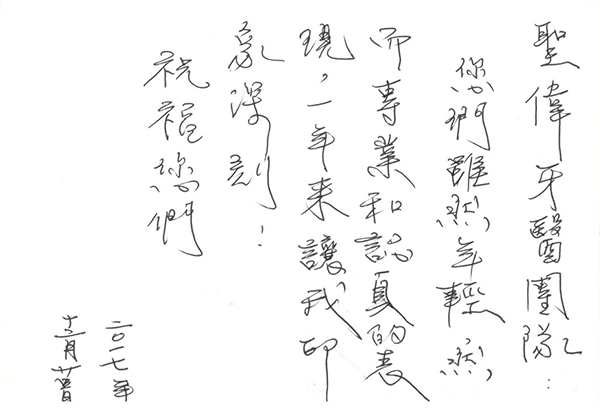 聖偉牙醫團隊:
您們雖然年輕，然
而專業和認真的表
現，一年来讓我印
象深刻!
祝福您們
二〇一七年
十二月廿日